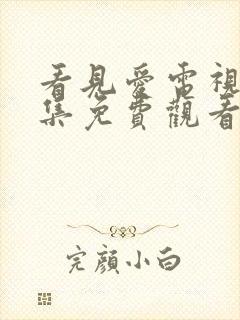 看見愛電視
集免費觀看
完顏小白